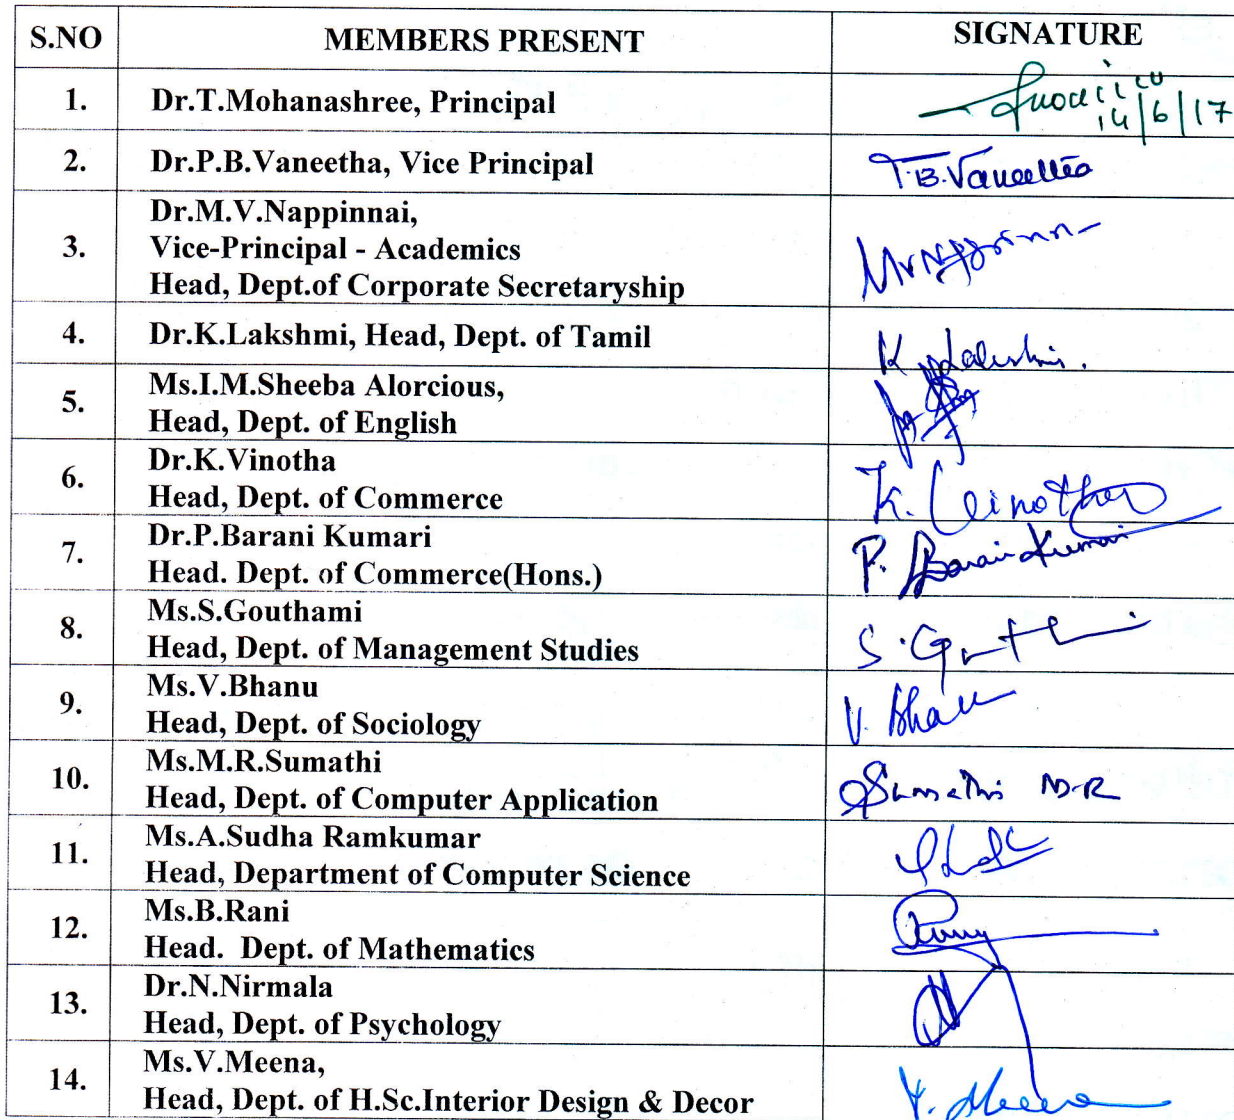 S.NO MEMBERS PRESENT SIGNATURE
1. Dr.T.Mohanashree, Principal
14/6/17
2. Dr.P.B.Vaneetha, Vice Principal P.B.Vaneetha
Dr.M.V.Nappinnai,
3. Vice-Principal - Academics
Head, Dept.of Corporate Secretaryship
4. Dr.K.Lakshmi, Head, Dept. of Tamil K. Lakshmi.
Ms.I.M.Sheeba Alorcious,
5.
Head, Dept. of English
Dr.K.Vinotha
6. K. Vinotha
Head, Dept. of Commerce
Dr.P.Barani Kumari
7. P. Barani Kumari
Head. Dept. of Commerce(Hons.)
Ms.S.Gouthami
8. S.
Head, Dept. of Management Studies
Ms.V.Bhanu
9. V. Bhanu
Head, Dept. of Sociology
Ms.M.R.Sumathi
10. Sumathi M.R
Head, Dept. of Computer Application
Ms.A.Sudha Ramkumar
11.
Head, Department of Computer Science
Ms.B.Rani
12.
Head. Dept. of Mathematics
Dr.N.Nirmala
13.
Head, Dept. of Psychology
Ms.V.Meena,
14. V. Meena
Head, Dept. of H.Sc.Interior Design & Decor